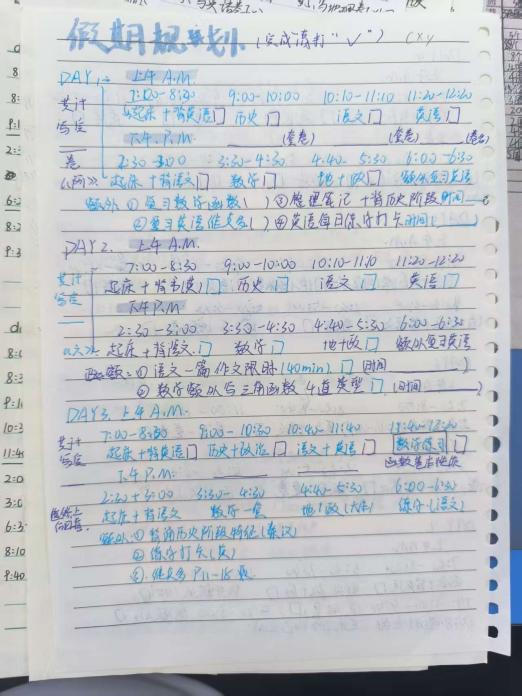 假期规划 (完成请打"✓") CXY
DAY1. 上午 A.M.
7:00-8:30 9:00-10:00 10:10-11:10 11:20-12:20
起床+背英语□ 历史□ 语文□ 英语□
共计
写完
卷
下午 P.M.
2:30-3:00 3:30-4:30 4:40-5:30 6:00-6:30
起床+背语文□ 数学□ 地+政□ 额外复习英语
额外① 复习数学函数( ) ②整理笔记+背历史阶段 时间
③复习英语维克多( ) ④英语每日练字打卡 时间(
DAY2. 上午 A.M.
7:00-8:30 9:00-10:00 10:10-11:10 11:20-12:20
共计
写完
起床+背书(英)□ 历史□ 语文□ 英语□
下午 P.M
2:30-3:00 3:30-4:30 4:40-5:30 6:00-6:30
起床+背语文.□ 数学□ 地+政□ 额外复习英语
① 语文一篇作文限时(40min)□ (时间
② 数学额外写三角函数4道类型□ (时间
DAY3. 上午 A.M.
7:00-8:30 9:00-10:30 10:40-11:40 11:40-12:20
共计
写完
起床+背英语□ 历史+政治□ 语文+英语□ 数学练习□
下午 P.M.
2:30-3:00 3:30-4:30 4:40-5:30 6:00-6:30
起床+背语文 数学一套 地+政 练字(语文)
额外:① 背诵历史阶段特征(秦汉)
② 练字打卡(英)
③ 维克多 P11-15